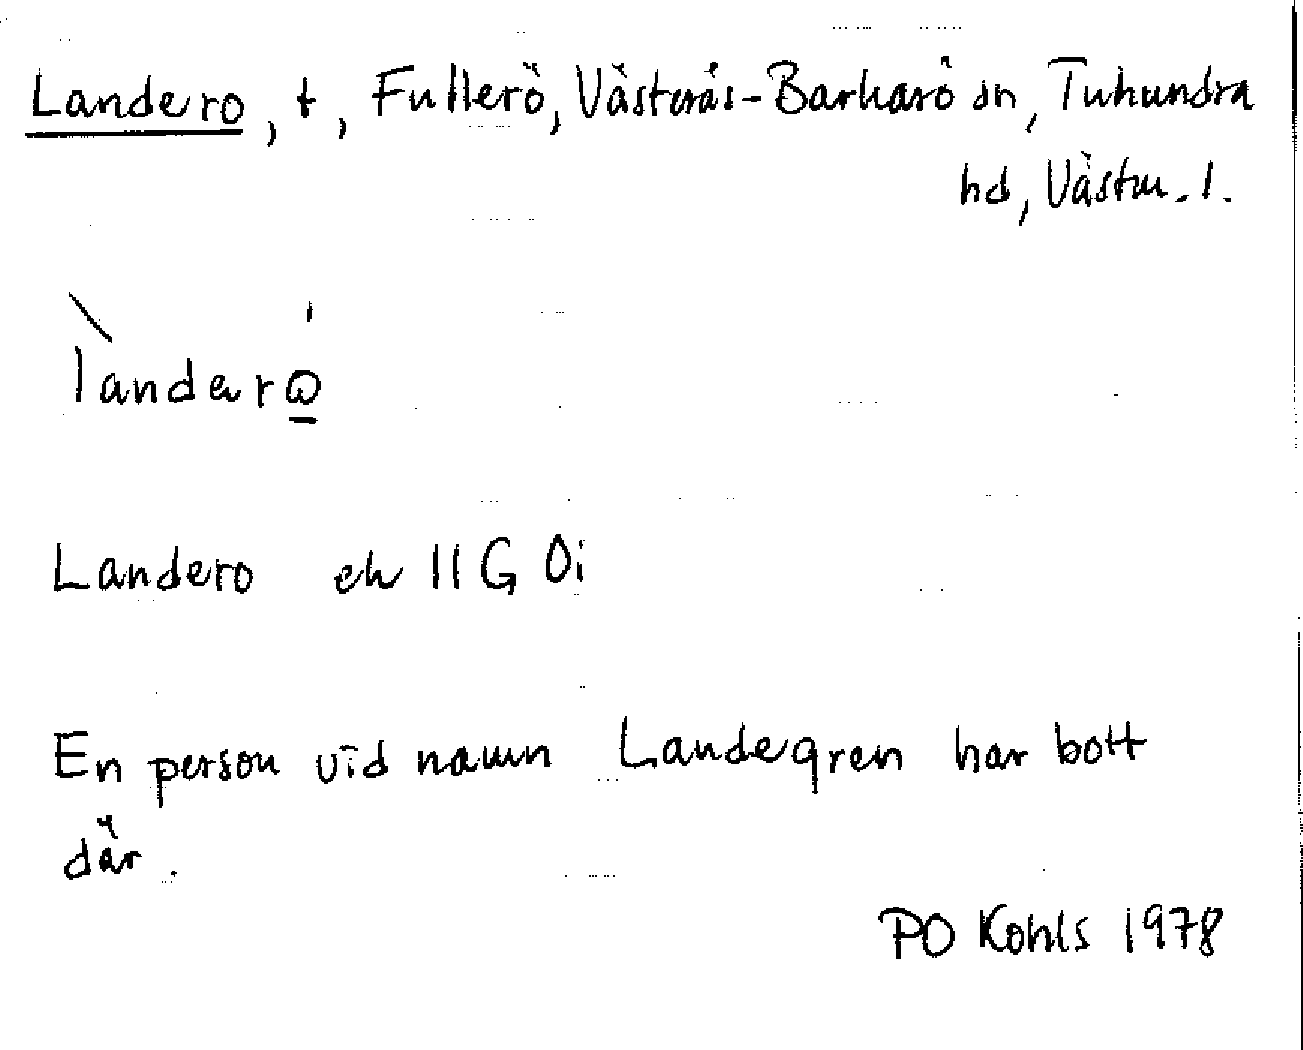 Landero, t, Fullerö, Västerås-Barkarö sn, Tuhundra
hd, Västm. l.
landerω
Landero ek 11G 0i
En person vid namn Landegren har bott
där.
PO Kohls 1978